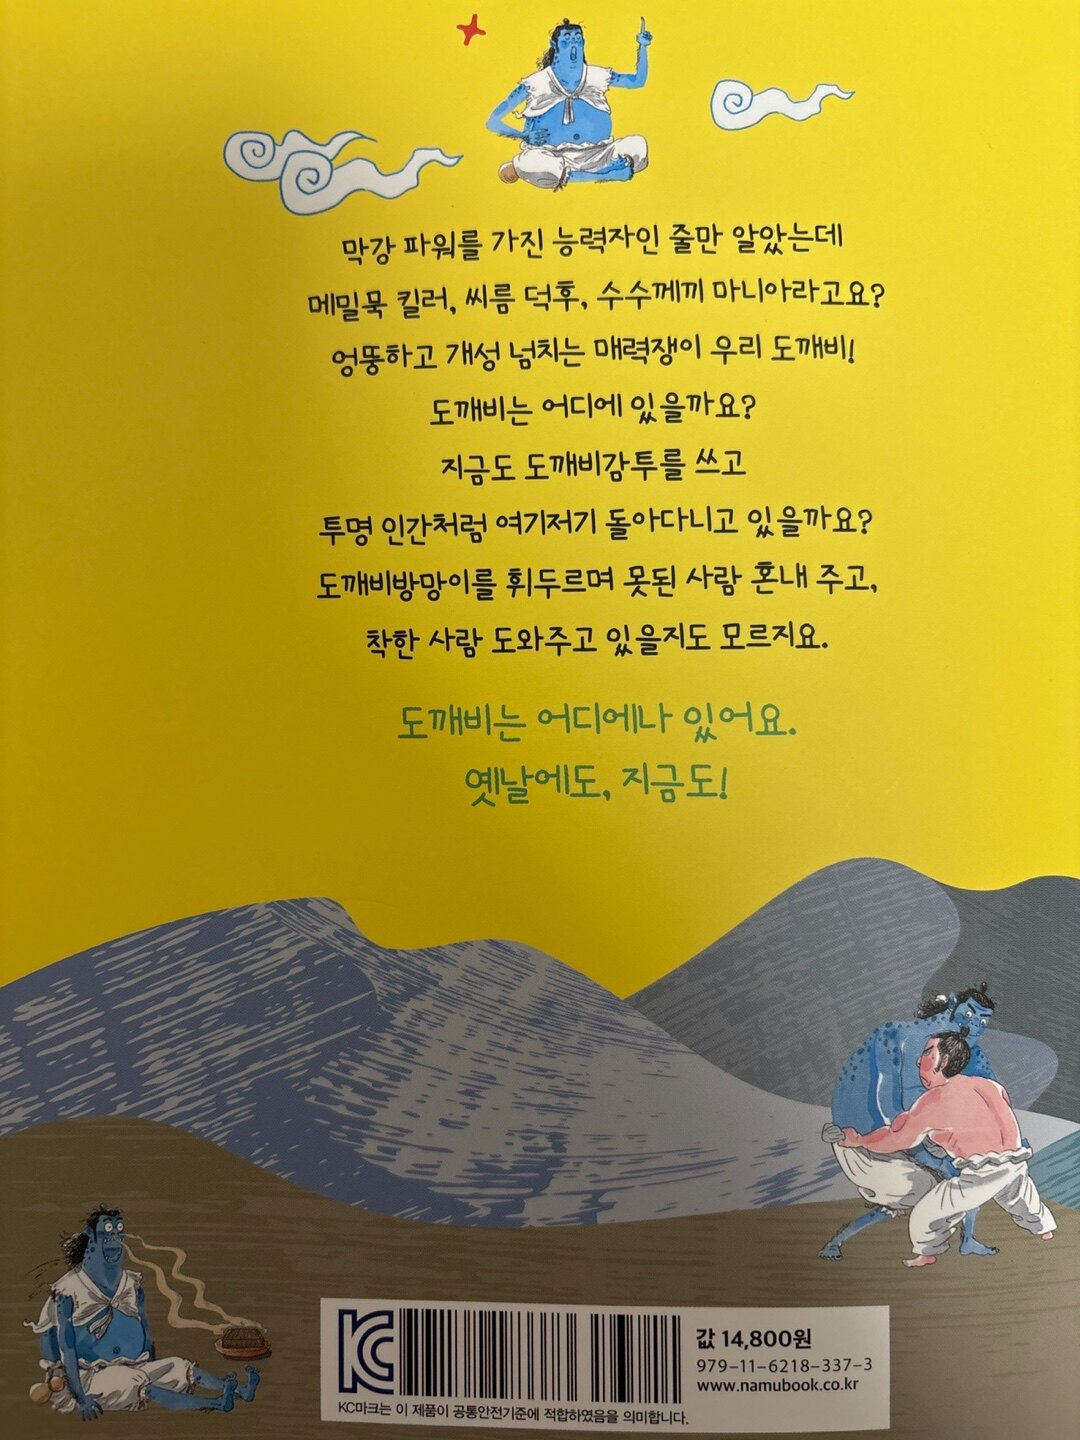 막강 파워를 가진 능력자인 줄만 알았는데
메밀묵 킬러, 씨름 덕후, 수수께끼 마니아라고요?
엉뚱하고 개성 넘치는 매력쟁이 우리 도깨비!
도깨비는 어디에 있을까요?
지금도 도깨비감투를 쓰고
투명 인간처럼 여기저기 돌아다니고 있을까요?
도깨비방망이를 휘두르며 못된 사람 혼내 주고,
착한 사람 도와주고 있을지도 모르지요.
도깨비는 어디에나 있어요.
옛날에도, 지금도!
KC
값 14,800원
979-11-6218-337-3
www.namubook.co.kr
KC마크는 이 제품이 공통안전기준에 적합하였음을 의미합니다.